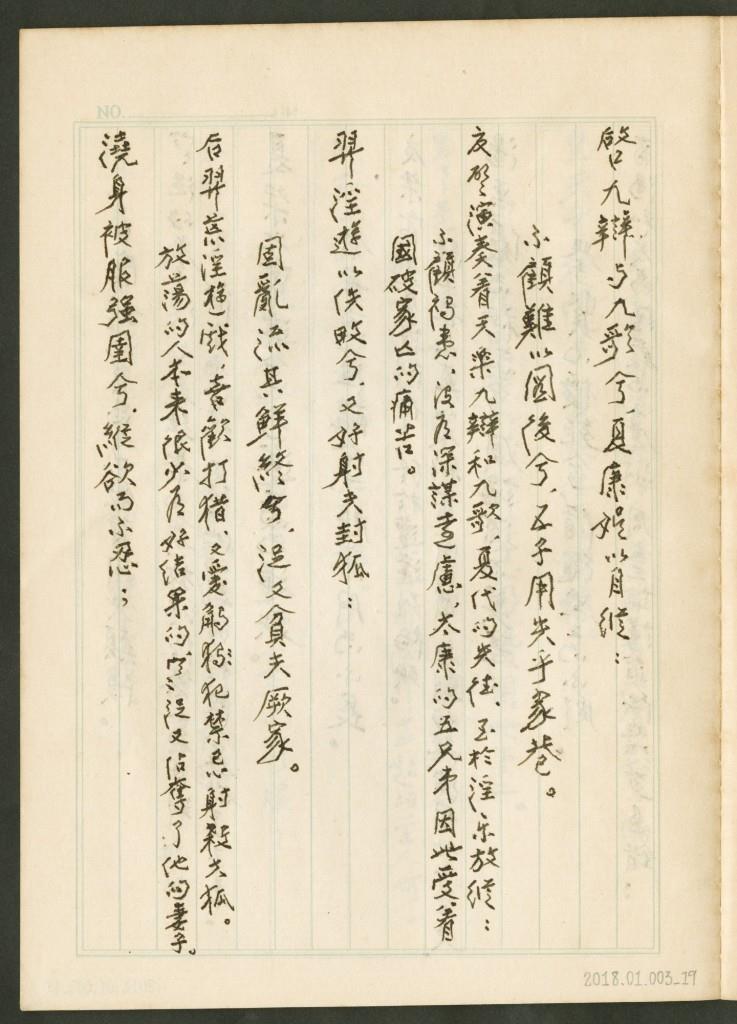 啟九辯与九歌兮，夏康娛以自縱：
不顧難以圖後兮，五子用失乎家巷。
夏啟演奏着天樂九辯和九歌，夏代的失德，至於淫乐放縱：
不顧禍患，沒有深謀遠慮，太康的五兄弟因此受着
國破家亡的痛苦。
羿淫遊以佚畋兮，又好射夫封狐：
固亂流其鮮終兮，浞又貪夫厥家。
后羿荒淫遊戲，喜歡打猎，又愛觸犯禁忌射殺大狐。
放蕩的人本来很少有好结果的，寒浞又佔奪了他的妻子。
澆身被服强圉兮，縱欲而不忍；
NO.
2018.01.003_19